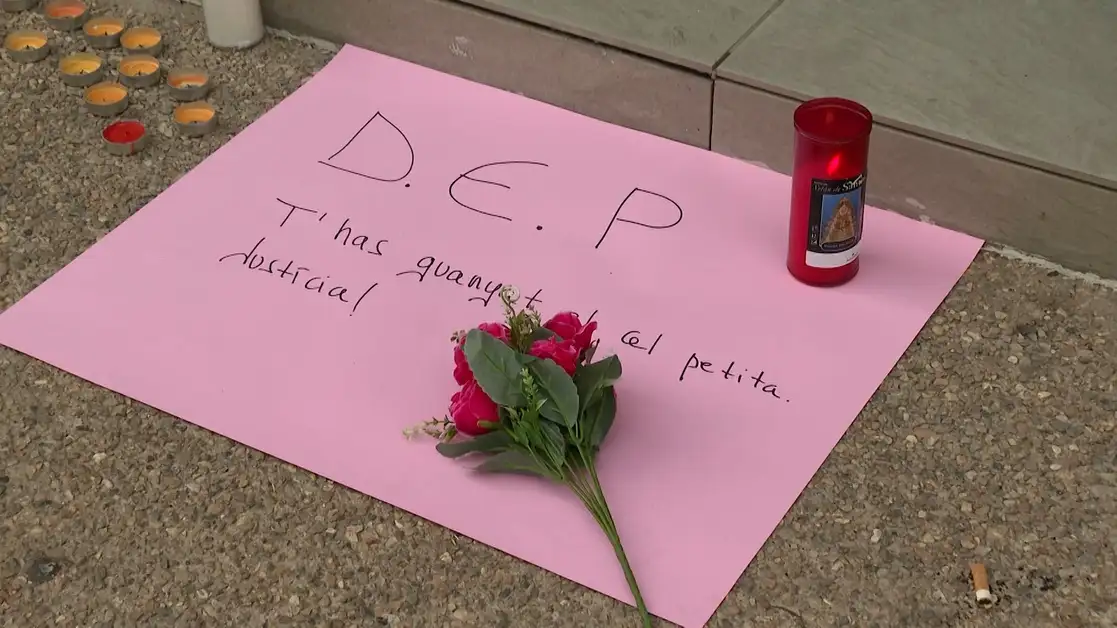 D.E.P
T'has guanyat el cel petita.
Justícia!